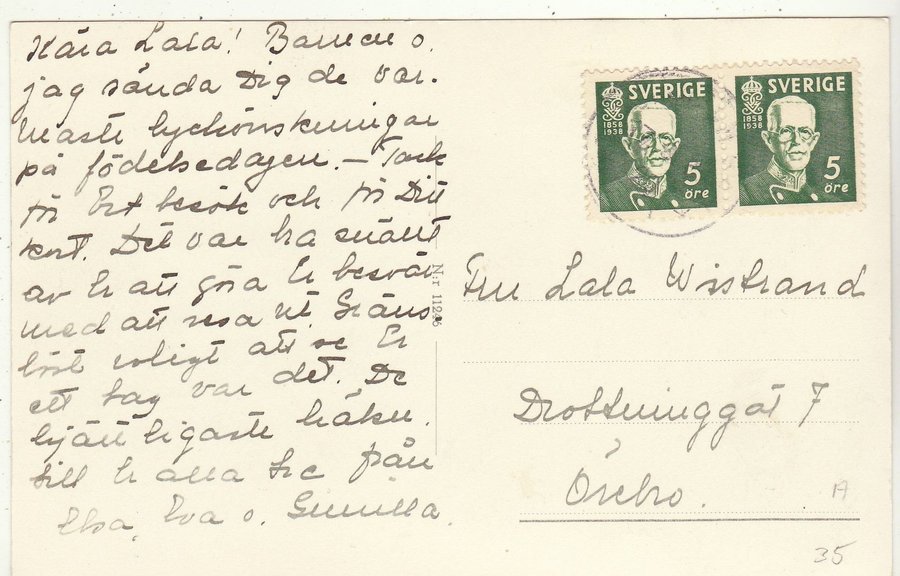 Kära Lala! Barnen o.
jag sända Dig de var-
maste lyckönskningar
på födelsedagen. – Tack
för Ert besök och för Ditt
kort. Det var bra snällt
av Er att göra Er besvär
med att resa ut. Gräns-
löst roligt att se Er
ett tag var det. De
hjärtligaste häls.
till Er alla tre från
Elsa, Eva o. Gunilla.
N:r 11236
SVERIGE
1858
1938
5
öre
SVERIGE
1858
1938
5
öre
Fru Lala Wistrand
Drottninggat 7
Örebro.
A
35